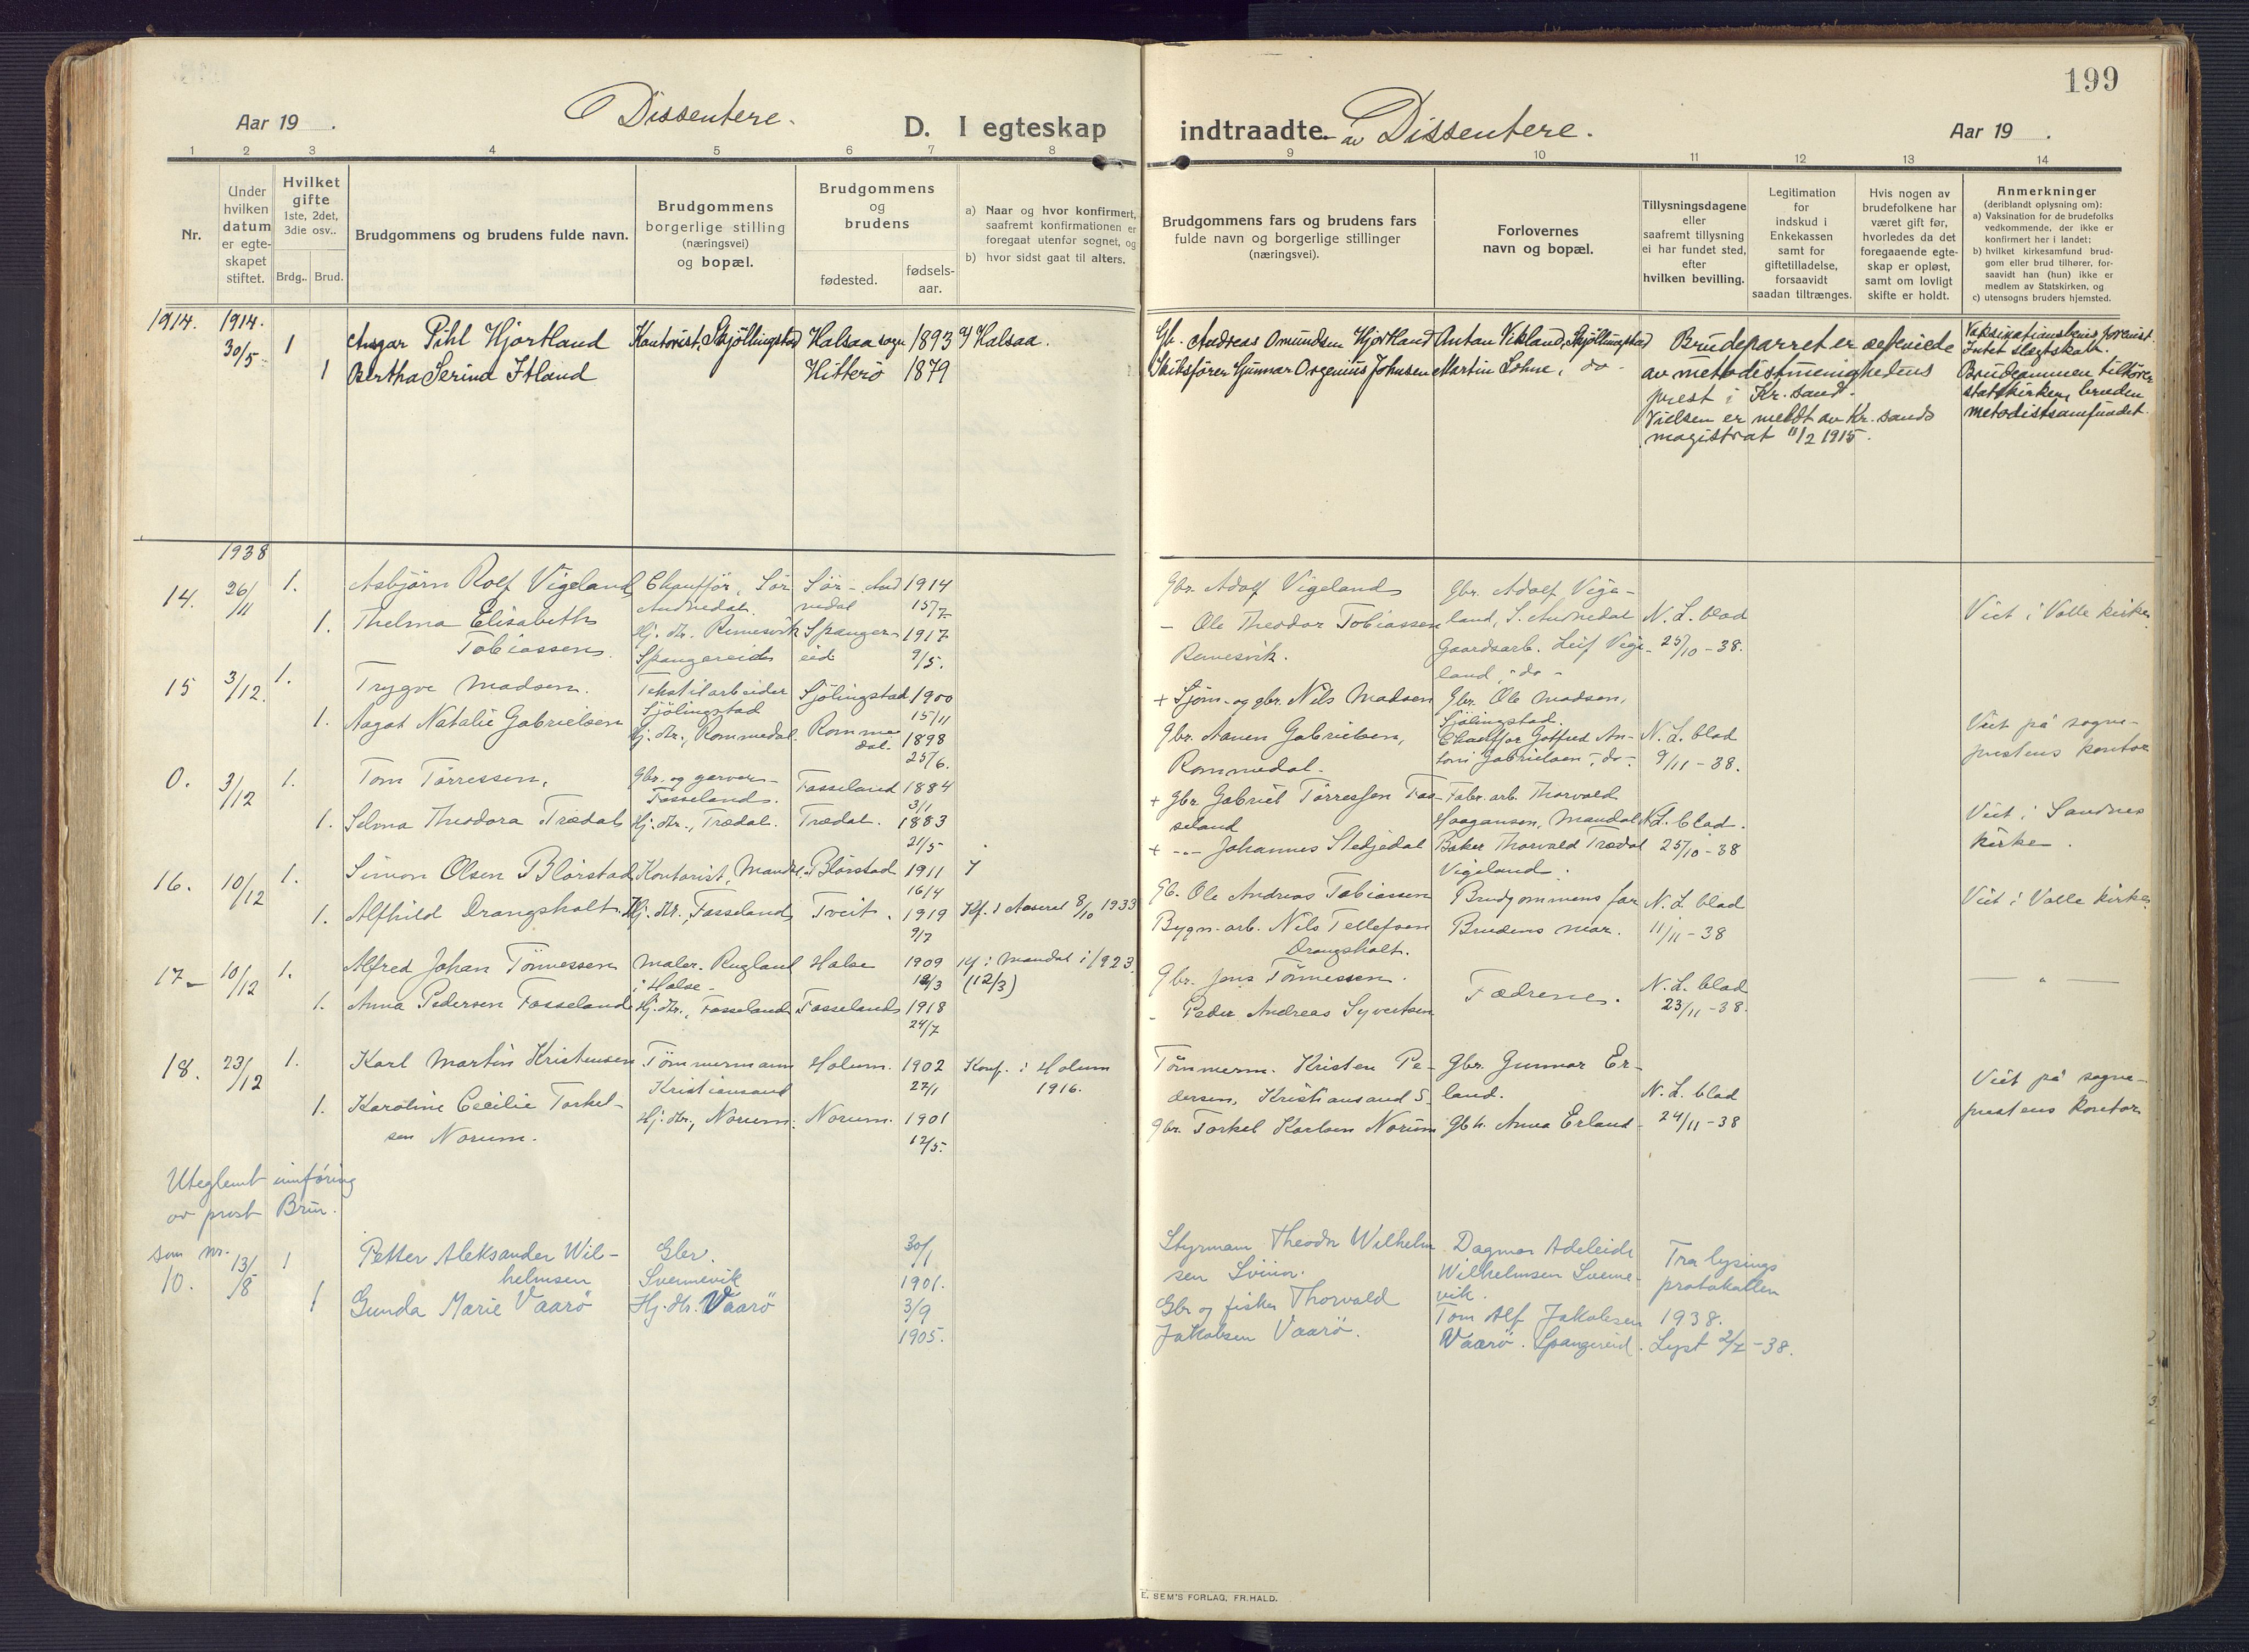 199
Aar 19 .
Dissentere.
D. I egteskap
indtraadte
av Dissentere.
Aar 19 .
1 2 3 4 5 6 7 8
9 10 11 12 13 14
Nr.
Under
hvilken
datum
er egte-
skapet
stiftet.
Hvilket
gifte
1ste, 2det,
3die osv..
Brdg.. Brud.
Brudgommens og brudens fulde navn.
Brudgommens
borgerlige stilling
(næringsvei)
og bopæl.
Brudgommens
og
brudens
fødested.
fødsels-
aar.
a) Naar og hvor konfirmert,
saafremt konfirmationen er
foregaat utenfor sognet, og
b) hvor sidst gaat til alters.
Brudgommens fars og brudens fars
fulde navn og borgerlige stillinger
(næringsvei).
Forlovernes
navn og bopæl.
Tillysningsdagene
eller
saafremt tillysning
ei har fundet sted,
efter
hvilken bevilling.
Legitimation
for
indskud i
Enkekassen
samt for
giftetilladelse,
forsaavidt
saadan tiltrænges.
Hvis nogen av
brudefolkene har
været gift før,
hvorledes da det
foregaaende egte-
skap er opløst,
samt om lovligt
skifte er holdt.
Anmerkninger
(deriblandt oplysning om):
a) Vaksination for de brudefolks
vedkommende, der ikke er
konfirmert her i landet;
b) hvilket kirkesamfund brud-
gom eller brud tilhører, for-
saavidt han (hun) ikke er
medlem av Statskirken, og
c) utensogns bruders hjemsted.
1914. 1914.
30/5 1 Ansgar Pihl Hjortland Kontorist, Skjöllingstad Halsaa sogn 1893 Halsaa.
1 Bertha Serine Itland Hitterö 1879
Gb. Andreas Omundsen Hjortland Anton Vikland, Skjöllingstad
Gunnar Johnsen Martin Lohne, do
Brudeparret er
av metodistmenighedens
prest i Kr. sand.
Vielsen er meldt av Kr. sands
magistrat 11/2 1915.
Intet slegtskab.
Brudgommen tilhörer
statskirken, bruden
metodistsamfundet.
1938
14. 26/11 1. Asbjörn Rolf Vigeland Chauffør, Sør- Sør-Aud 1914
Audnedal. nedal 15/7
1. Thelma Elisabeth Hj. dtr. Remesvik Spanger- 1917
Tobiassen. Spangereid eid 9/5.
Gbr. Adolf Vigeland Gbr. Adolf Vige-
- Ole Theodor Tobiassen land, S. Audnedal N. L. blad Viet i Valle kirke
Remesvik. Gaardsarb. Leif Vige- 25/10-38.
land, -do-
15 3/12. 1. Trygve Madsen. Tekstilarbeider Sjölingstad 1900
Sjölingstad 15/11
1. Aagot Natalie Gabrielsen Hj. dtr., Rommedal. Romme 1898
dal. 25/6.
+ Sjöm.- og gbr. Nils Madsen Gbr. Ole Madsen,
Sjölingstad.
Gbr. Aanen Gabrielsen, Chauffør Gotfred An- N. L. blad Viet på sogne-
Rommedal. toni Gabrielsen, -do-. 9/11-38. prestens kontor
0. 3/12 1. Tom Tørressen, Gbr. og garver- Fasseland 1884
Fasseland. 3/1
1. Selma Theodora Trædal Hj. dtr., Trædal. Trædal. 1883
21/5
+ Gbr. Gabriel Tørressen Fas- Fabr. arb. Thorvald
seland Haagansen, Mandal N.L. blad. Viet i Sandnes
+ -"- Johannes Stedjedal Baker Thorvald Trædal 25/10-38 kirke.
Vigeland.
16. 10/12 1. Simon Olsen Blørstad Kontorist, Mandal. Blørstad 1911
16/4
1. Alfhild Drangsholt. Hj. dtr., Fasseland Tveit. 1919 Kf. i Aaseral 8/10 1933
9/7
Gb. Ole Andreas Tobiassen Brudgommens far N. L. blad Viet i Valle kirke
Bygn.-arb. Nils Tellefsen Brudens mor. 11/11-38
Drangsholt.
17- 10/12 1. Alfred Johan Tönnessen Maler. Rugland Halse 1909 Kf. i Mandal i 1923.
i Halse- (12/3)
1. Anna Pedersen Fasseland Hj. dtr., Fasseland Fasseland 1918
24/7
Gbr. Jens Tönnessen. N. L. blad - " -
- Peder Andreas Syvertsen Fædrene. 23/11-38.
18. 23/12 1. Karl Martin Kristensen Tömmermann Holum. 1902 Konf. i Holum
Kristiansand 22/1 1916.
1. Karoline Cecilie Torkel- Hj. dtr., Norum. Norum. 1901
sen Norum. 12/5.
Tömmerm. Kristen Pe- Gbr. Gunnar Er-
dersen, Kristiansand S. land. N. L. blad Viet på sogne-
Gbr. Torkel Karlsen Norum Gbh. Anna Erland 24/11-38 prestens kontor
Uteglemt innføring
av prost Brun.
som nr.
10. 13/8 1 Petter Aleksander Wil- Gbr. 30/1
helmsen Svennevik 1901.
1 Gunda Marie Vaarö Hj. dtr. Vaarö 3/9
1905.
Styrmann Theodor Wilhelm Dagmar Adeleide Fra lysings
sen Wilhelmsen Svenne- protokollen
Gbr og fisker Thorvald vik. 1938.
Jakobsen Vaarö. Tom Alf Jakobsen Lyst 2/7-38.
Vaarö. Spangereid.
E. SEM'S FORLAG, FR.HALD.